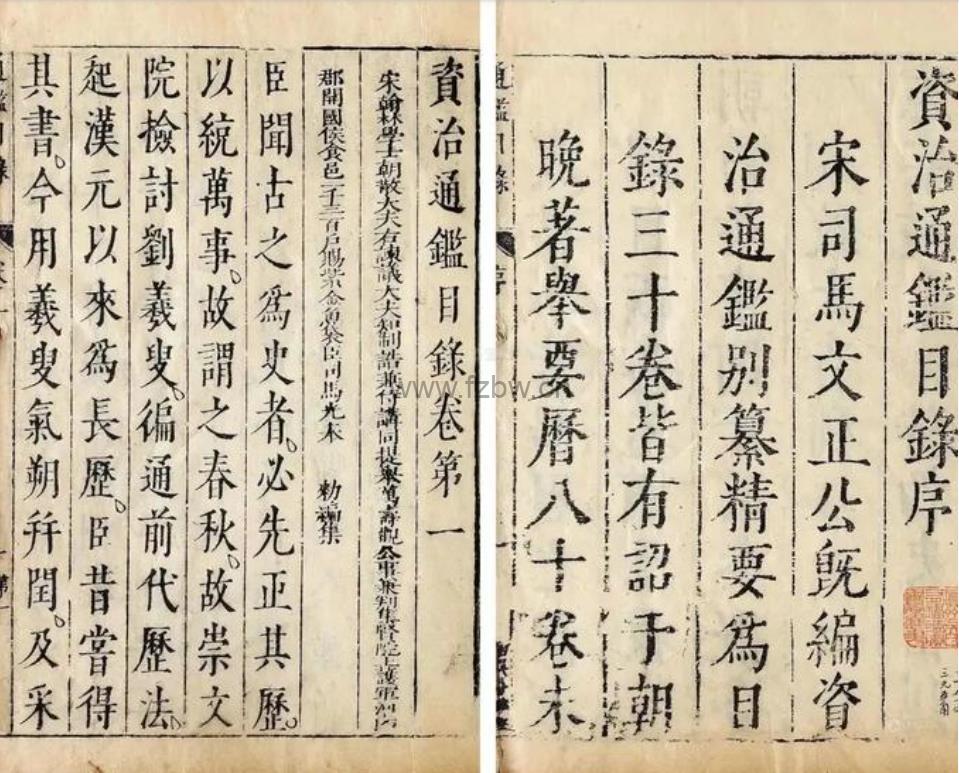 資治通鑑目錄序
宋司馬文正公旣編資
治通鑑別纂精要爲目
錄三十卷皆有詔于朝
晚著舉要曆八十卷未
資治通鑑目錄卷第一
宋翰林學士朝散大夫右諫議大夫知制誥兼侍講同提舉萬壽觀公事兼判集賢院上護軍河內
郡開國侯食邑一千三百戶賜紫金魚袋臣司馬光奉 勑編集
臣聞古之爲史者必先正其歷
以統萬事故謂之春秋故崇文
院撿討劉羲叟徧通前代歷法
起漢元以來爲長歷臣昔嘗得
其書今用羲叟氣朔幷閏及采
www.fzbw.cn